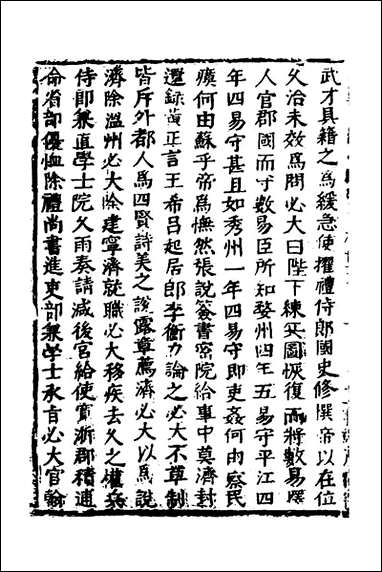 武才具籍之為緩急使擢禮侍郎國史修撰帝以在位
久治未效為問必大曰陛下練兵圖恢復而將數易擇
人官郡國而守數易臣所知婺州四年五易守平江四
年四易守甚且如秀州一年四易守即吏姦何由察民
瘼何由蘇乎帝為憮然張說簽書密院給事中莫濟封
還録黄正言王希吕起居郎李衡力論之必大不草制
皆斥外都人為四賢詩美之說露章薦濟必大以為說
濟除溫州必大除建寧濟就職必大移疾去久之權兵
侍郎兼直學士院久雨奏請減後官給使寬浙郡積逋
命省部優恤除禮尚書進吏部兼學士承旨必大官翰